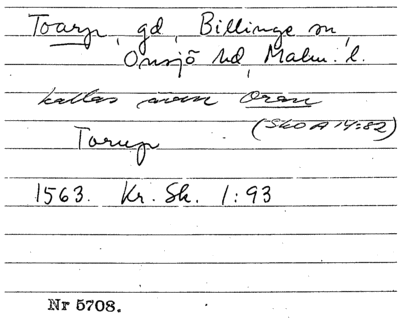 Toarp, gd, Billinge sn,
Onsjö hd, Malm. l.
kallas även Oran
(Sko A 14:82)
Torup
1563. Kr. Sk. 1:93
Nr 5708.